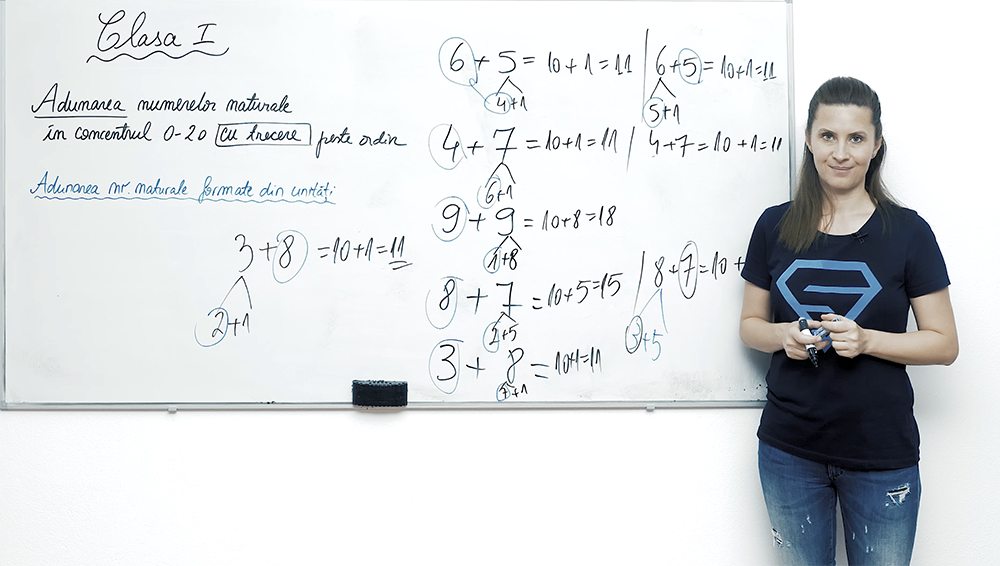 Clasa I
Adunarea numerelor naturale
în concentrul 0-20 cu trecere peste ordin
Adunarea nr. naturale formate din unități
3 + 8 = 10 + 1 = 11
2 + 1
6 + 5 = 10 + 1 = 11
4 + 1
4 + 7 = 10 + 1 = 11
6 + 1
9 + 9 = 10 + 8 = 18
1 + 8
8 + 7 = 10 + 5 = 15
2 + 5
3 + 8 = 10 + 1 = 11
7 + 1
6 + 5 = 10 + 1 = 11
5 + 1
4 + 7 = 10 + 1 = 11
8 + 7 = 10 +
3 + 5